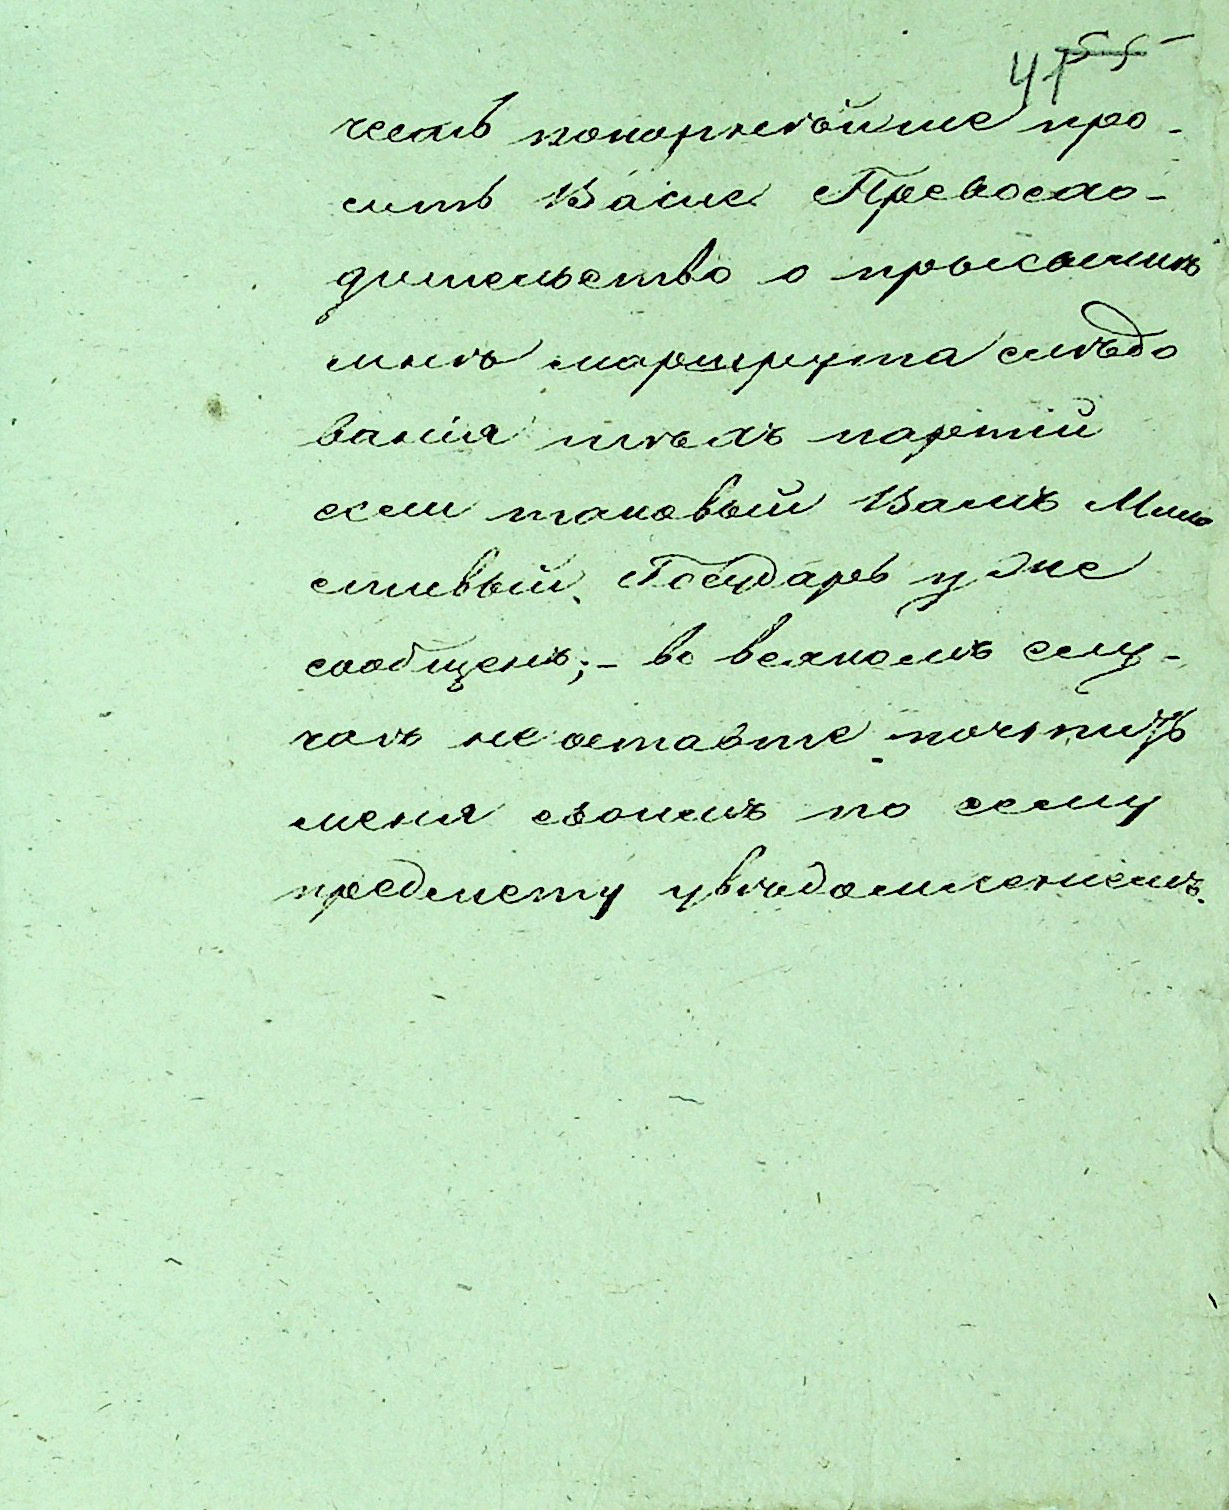 41 55
честь покорнѣйше про-
сить Ваше Превосхо-
дительство о присылкѣ
мнѣ маршрута слѣдо
ванія тѣхъ партій
если таковый Вамъ Мило
стивый Государь уже
сообщенъ; – во всякомъ слу-
чаѣ не оставте почтить
меня своимъ по сему
предмету увѣдомленіемъ.